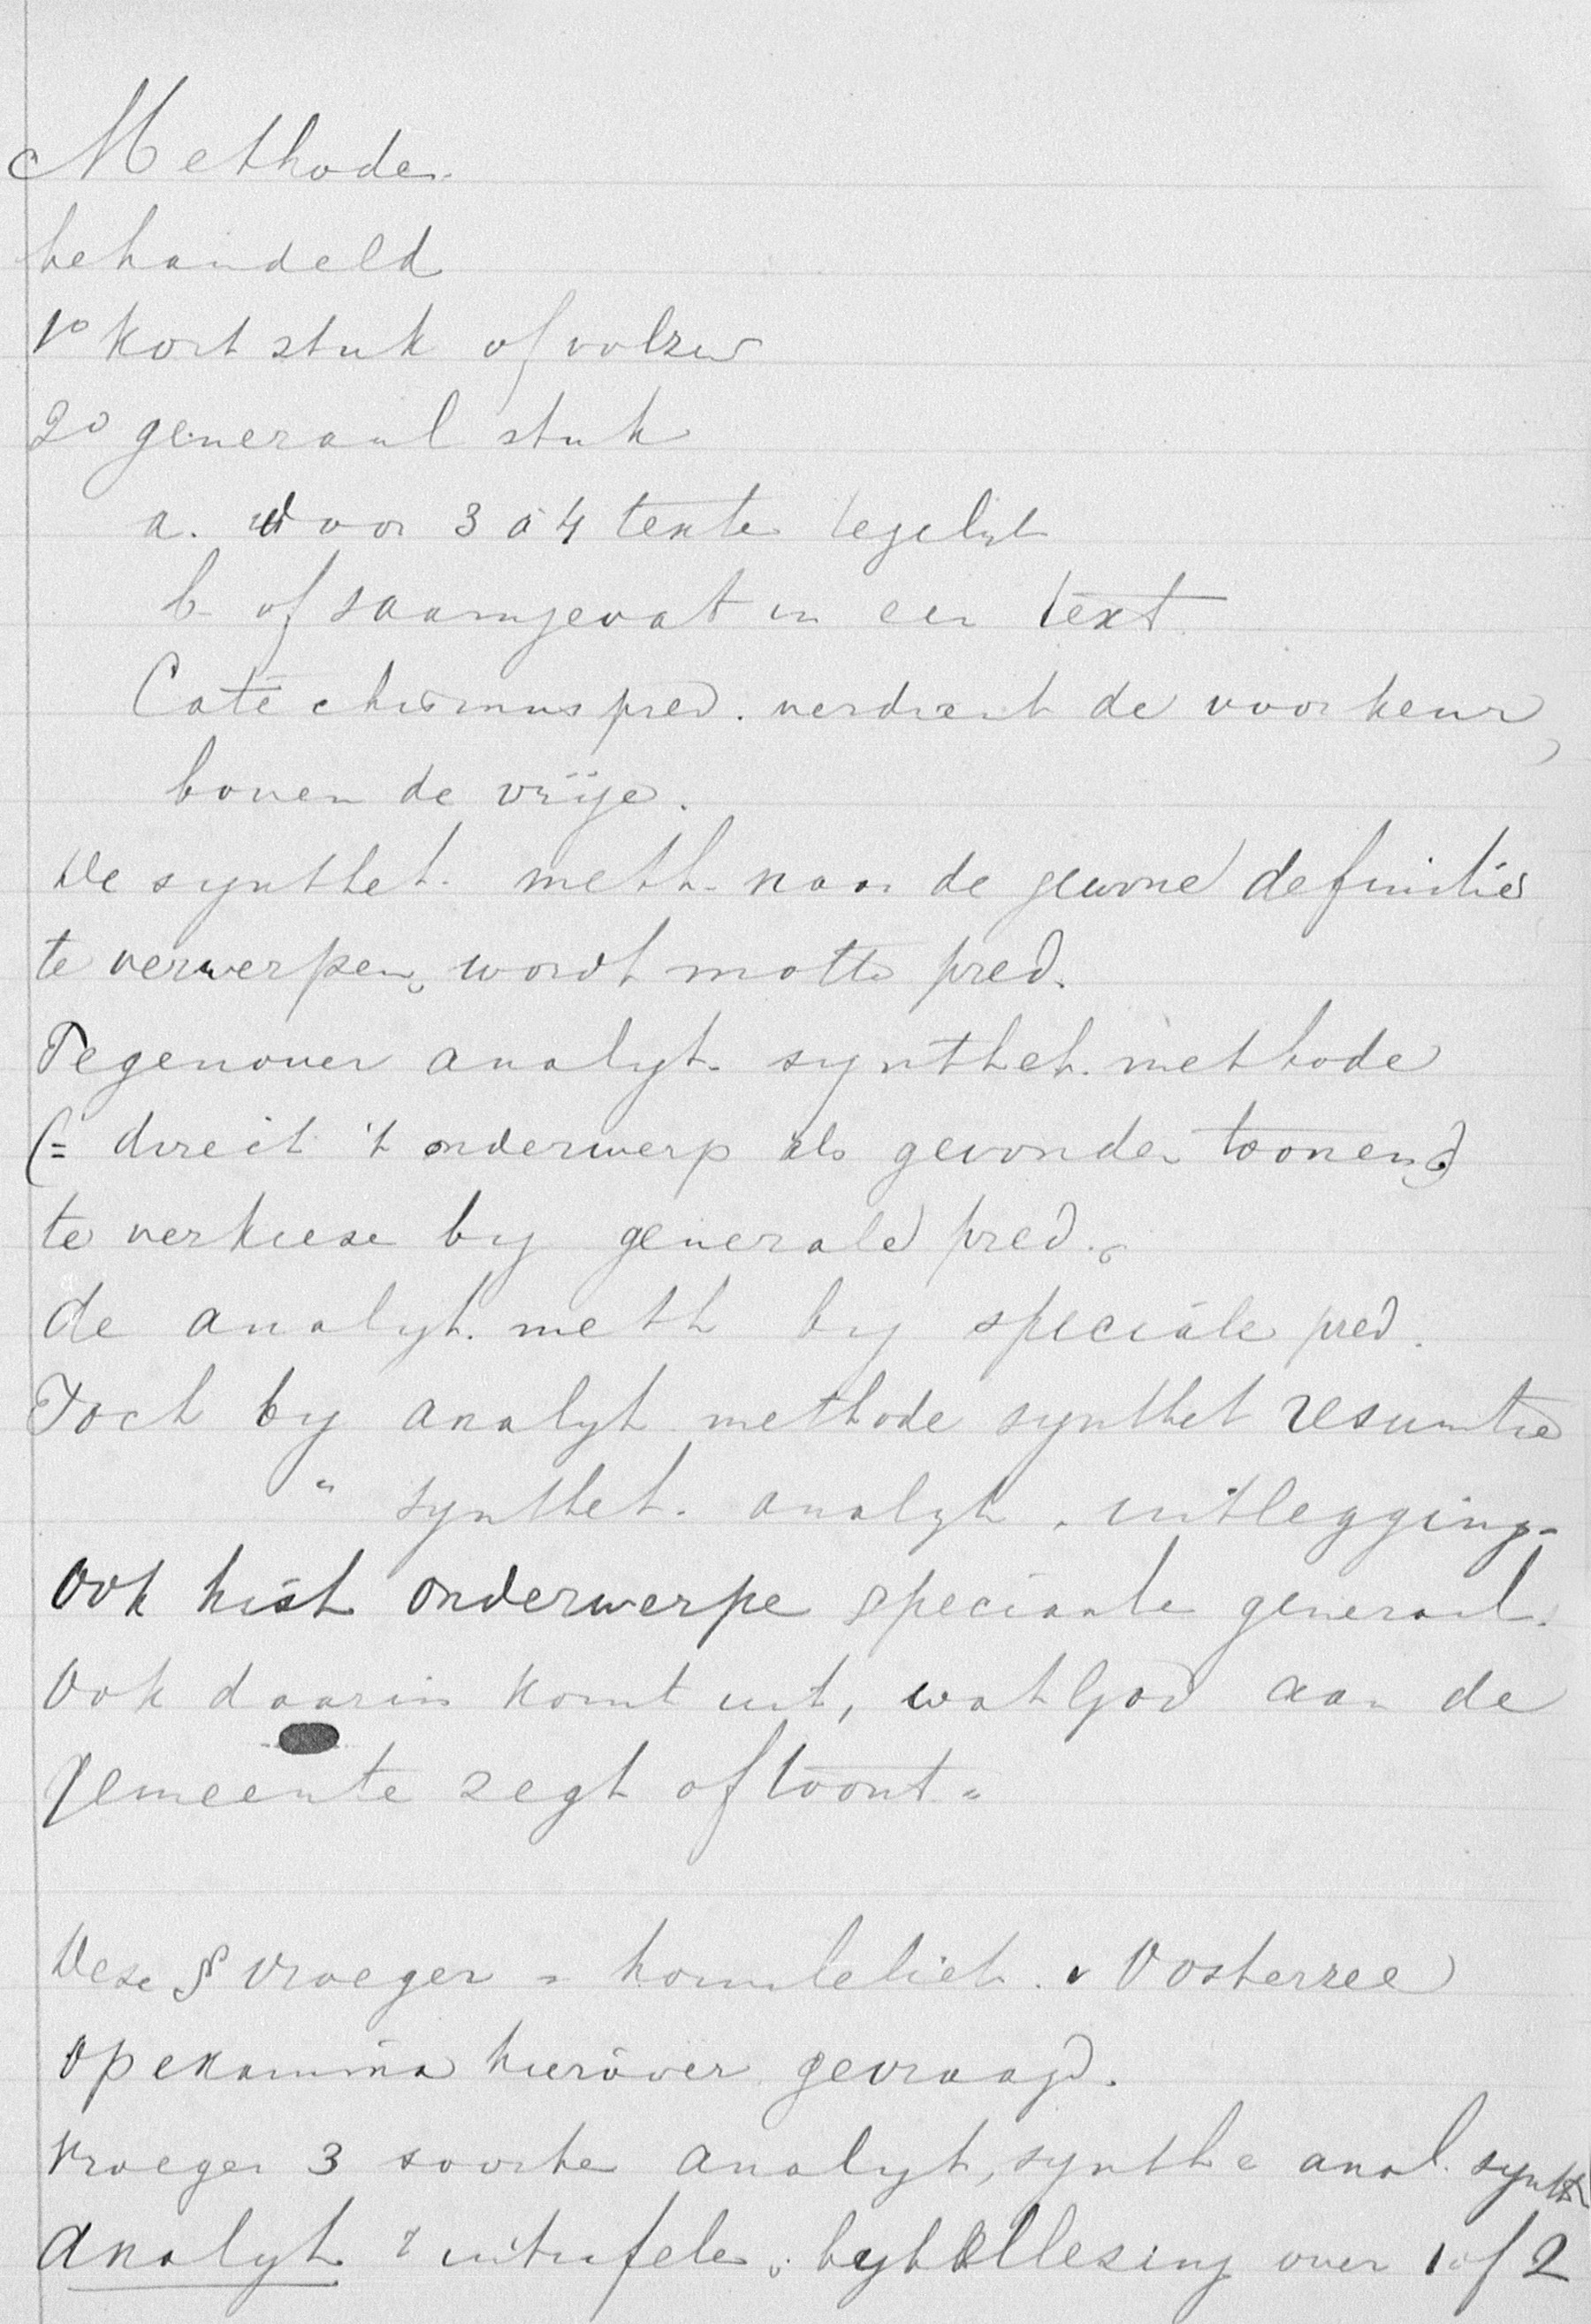 Methode.
behandeld
1° kort stuk of volzin
2° generaal stuk
a. door 3 á 4 texte tegelijk
b. of saamgevat in een text.
Catechismuspred. verdient de voorkeur,
boven de vrije.
De synthet. meth. naar de gewone definities
te verwerpen, wordt motto pred.
Tegenover analyt. synthet. methode
(= direct 't onderwerp als gevonden toonend)
te verkiese by generale pred.
de analyt. meth by speciale pred.
Toch by analyt methode synthet resumtie
" synthet. analyt. uitlegging.
Ook hist onderwerpe speciaale generaal.
Ook daarin komt uit, wat God aan de
gemeente zegt of toont.
Deze § vroeger = homiletiek. v Oosterzee
Op examina hierover gevraagd.
Vroeger 3 soorte analyt, synth e anal. synth
Analyt = uitrafele. bybellezing over 1 of 2